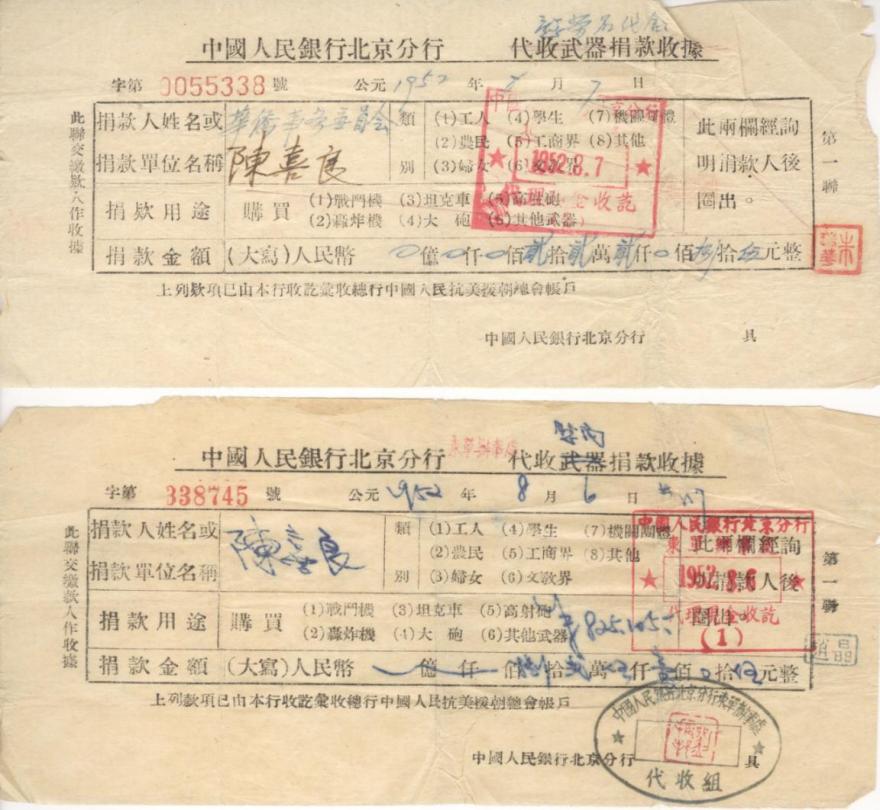 中國人民銀行北京分行 代收武器捐款收據
字第 0055338 號 公元 1952 年 8 月 7 日
此聯交繳款人作收據
捐款人姓名或 華僑事務委員會
捐款單位名稱 陳喜良
類別
(1)工人 (4)學生 (7)機關團體
(2)農民 (5)工商界 (8)其他
(3)婦女 (6)文教界
此兩欄經詢
明捐款人後
圈出。
第一聯
1952.8.7
捐款用途 購買
(1)戰鬥機 (3)坦克車 (5)高射砲
(2)轟炸機 (4)大砲 (6)其他武器
捐款金額 (大寫)人民幣 0億0仟0佰貳拾貳萬貳仟0佰 拾伍元整
上列欵項已由本行收訖彙收總行中國人民抗美援朝總會帳戶
中國人民銀行北京分行 具
中國人民銀行北京分行 東單辦事處 代收武器捐款收據
字第 338745 號 公元 1952 年 8 月 6 日
此聯交繳款人作收據
捐款人姓名或
捐款單位名稱
陳喜良
類別
(1)工人 (4)學生 (7)機關團體
(2)農民 (5)工商界 (8)其他
(3)婦女 (6)文敎界
此兩欄經詢
明捐款人後
圈出。
第一聯
中國人民銀行北京分行
1952.8.6
代理現金收訖
(1)
捐款用途 購買
(1)戰鬥機 (3)坦克車 (5)高射砲
(2)轟炸機 (4)大砲 (6)其他武器
825.105.-
捐款金額 (大寫)人民幣 億 仟 佰 拾 萬 仟壹佰0拾伍元整
上列款項已由本行收訖彙收總行中國人民抗美援朝總會帳戶
中國人民銀行北京分行 具
中國人民銀行北京分行東單辦事處
代收組